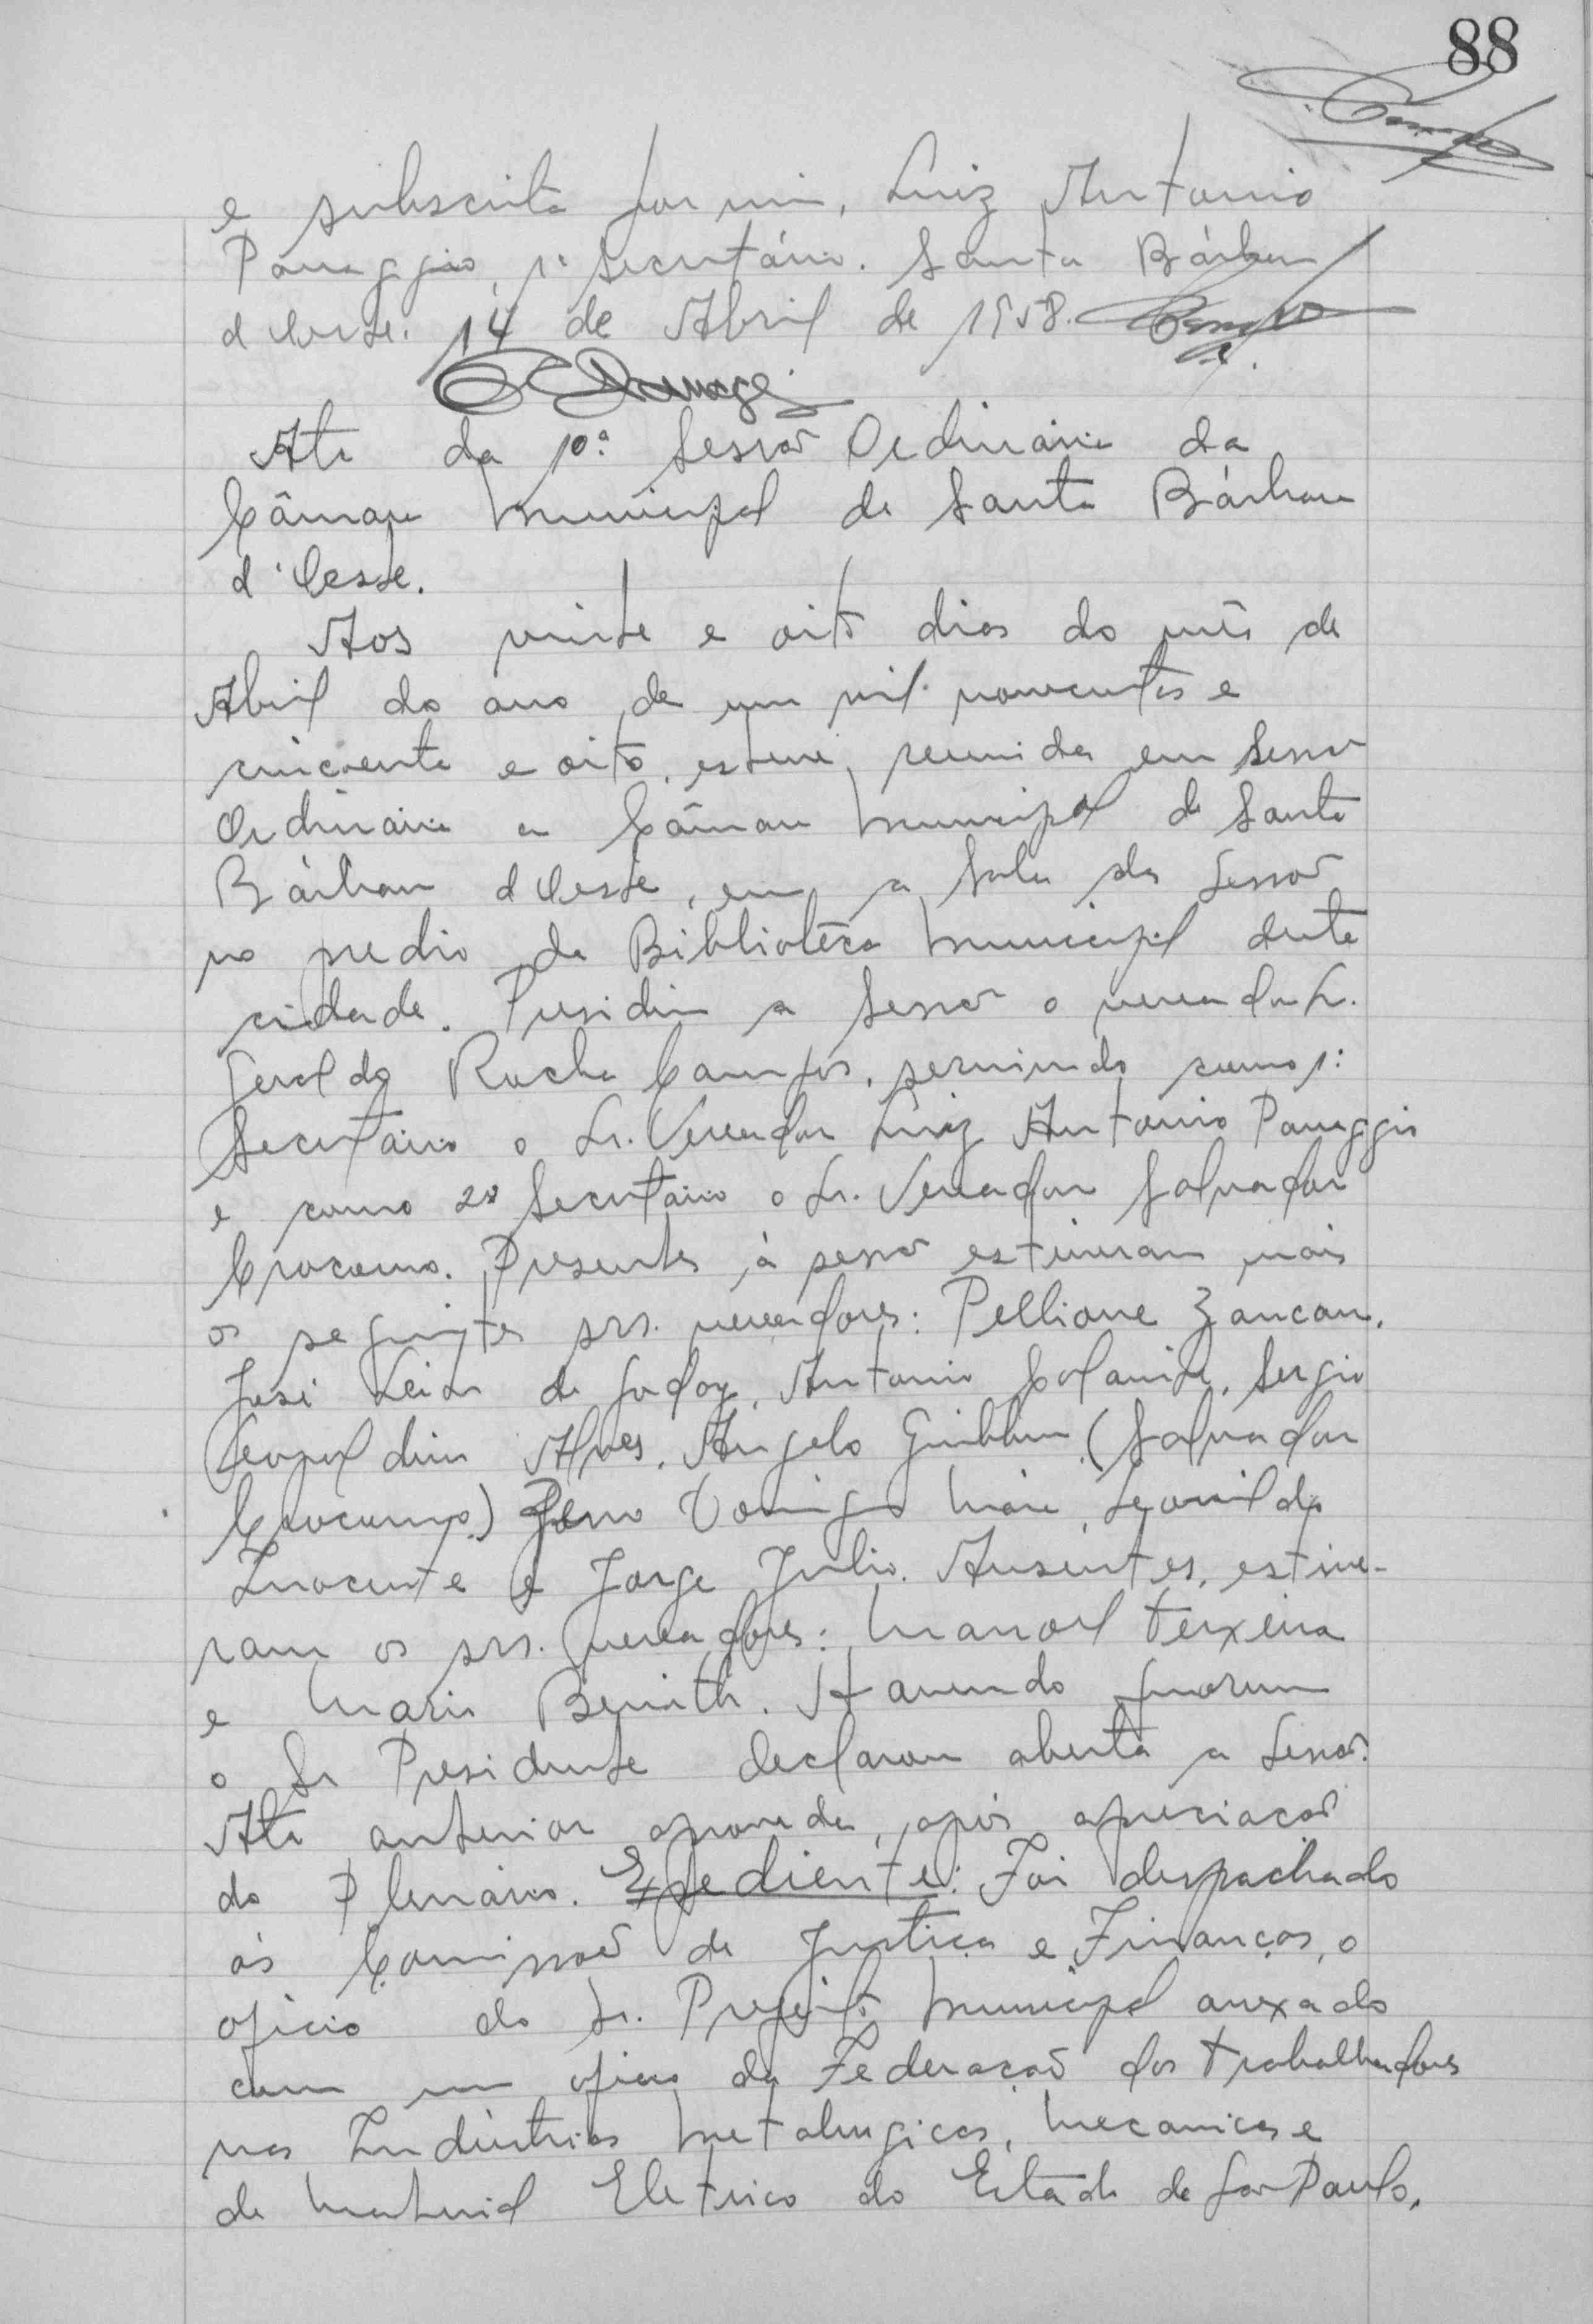 88
e subscrita por mim, Luiz Antonio
Panaggio, 1º Secretário. Santa Bárbara
d'Oeste. 14 de Abril de 1958.
Ata da 10ª Sessão Ordinária da
Câmara Municipal de Santa Bárbara
d'Oeste.
Aos vinte e oito dias do mês de
Abril do ano de um mil novecentos e
cincoenta e oito, esteve reunida em Sessão
Ordinária a Câmara Municipal de Santa
Bárbara d'Oeste, em a Sala da Sessão
no predio da Bibliotéca Municipal desta
cidade. Presidiu a Sessão o vereador Sr.
Geraldo Rocha Campos, servindo como 1º
Secretário o Sr. Vereador Luiz Antonio Panaggio
e como 2º Secretário o Sr. Vereador Salvador
Crocomo. Presentes à sessão estiveram mais
os seguintes srs. vereadores: Pellione Zancan,
José Leite de Godoy, Antonio Sergio
Leopoldino Alves, Angelo Giubbina (Salvador
Crocomo) Domingos Leonildo
Inocente e Jorge Julio. Ausentes, estive-
ram os srs. vereadores: Manoel Teixeira
e Mario. Havendo quorum
o Sr Presidente declarou aberta a Sessão.
Ata anterior aprovada, após apreciação
do Plenário. Expediente: Foi despachado
às Comissão de Justiça e Finanças, o
oficio do Sr. Prefeito Municipal anexado
com um oficio da Federação dos trabalhadores
nas Indústrias Metalurgicas, Mecanicas e
de Material Eletrico do Estado de São Paulo,